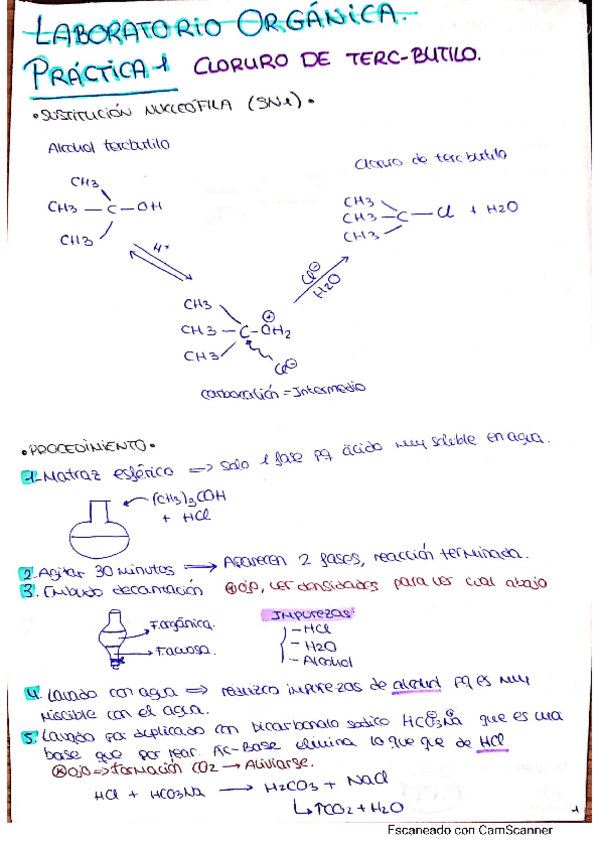 LABORATORIO ORGÁNICA.
PRÁCTICA 1 CLORURO DE TERC-BUTILO.
• SUSTITUCIÓN NUCLEÓFILA (SN1) •
Alcohol tercbutilo
Cloruro de tercbutilo
CH3
CH3 — C — OH
CH3
H+
CH3
CH3 — C — Cl + H2O
CH3
Cl⊖
H2O
CH3
⊕
CH3 — C — OH2
CH3
Cl⊖
Carbocatión = Intermedio
• PROCEDIMIENTO •
1. Matraz esférico => Solo 1 fase pq ácido muy soluble en agua.
(CH3)3COH
+ HCl
2. Agitar 30 minutos => Aparecen 2 fases, reacción terminada.
3. Embudo decantación OJO, ver densidades para ver cual abajo
F.orgánica.
F.acuosa.
IMPUREZAS:
- HCl
- H2O
- Alcohol
4. Lavado con agua => reduzco impurezas de alcohol pq es muy
miscible con el agua.
5. Lavado por duplicado con bicarbonato sodico HCO3⊖Na⊕ que es una
base que por reac. Ac-Base elimina lo que que de HCl
OJO => formación CO2 → Aliviarse.
HCl + HCO3Na → H2CO3 + NaCl
↳ ↑CO2 + H2O
1
Escaneado con CamScanner